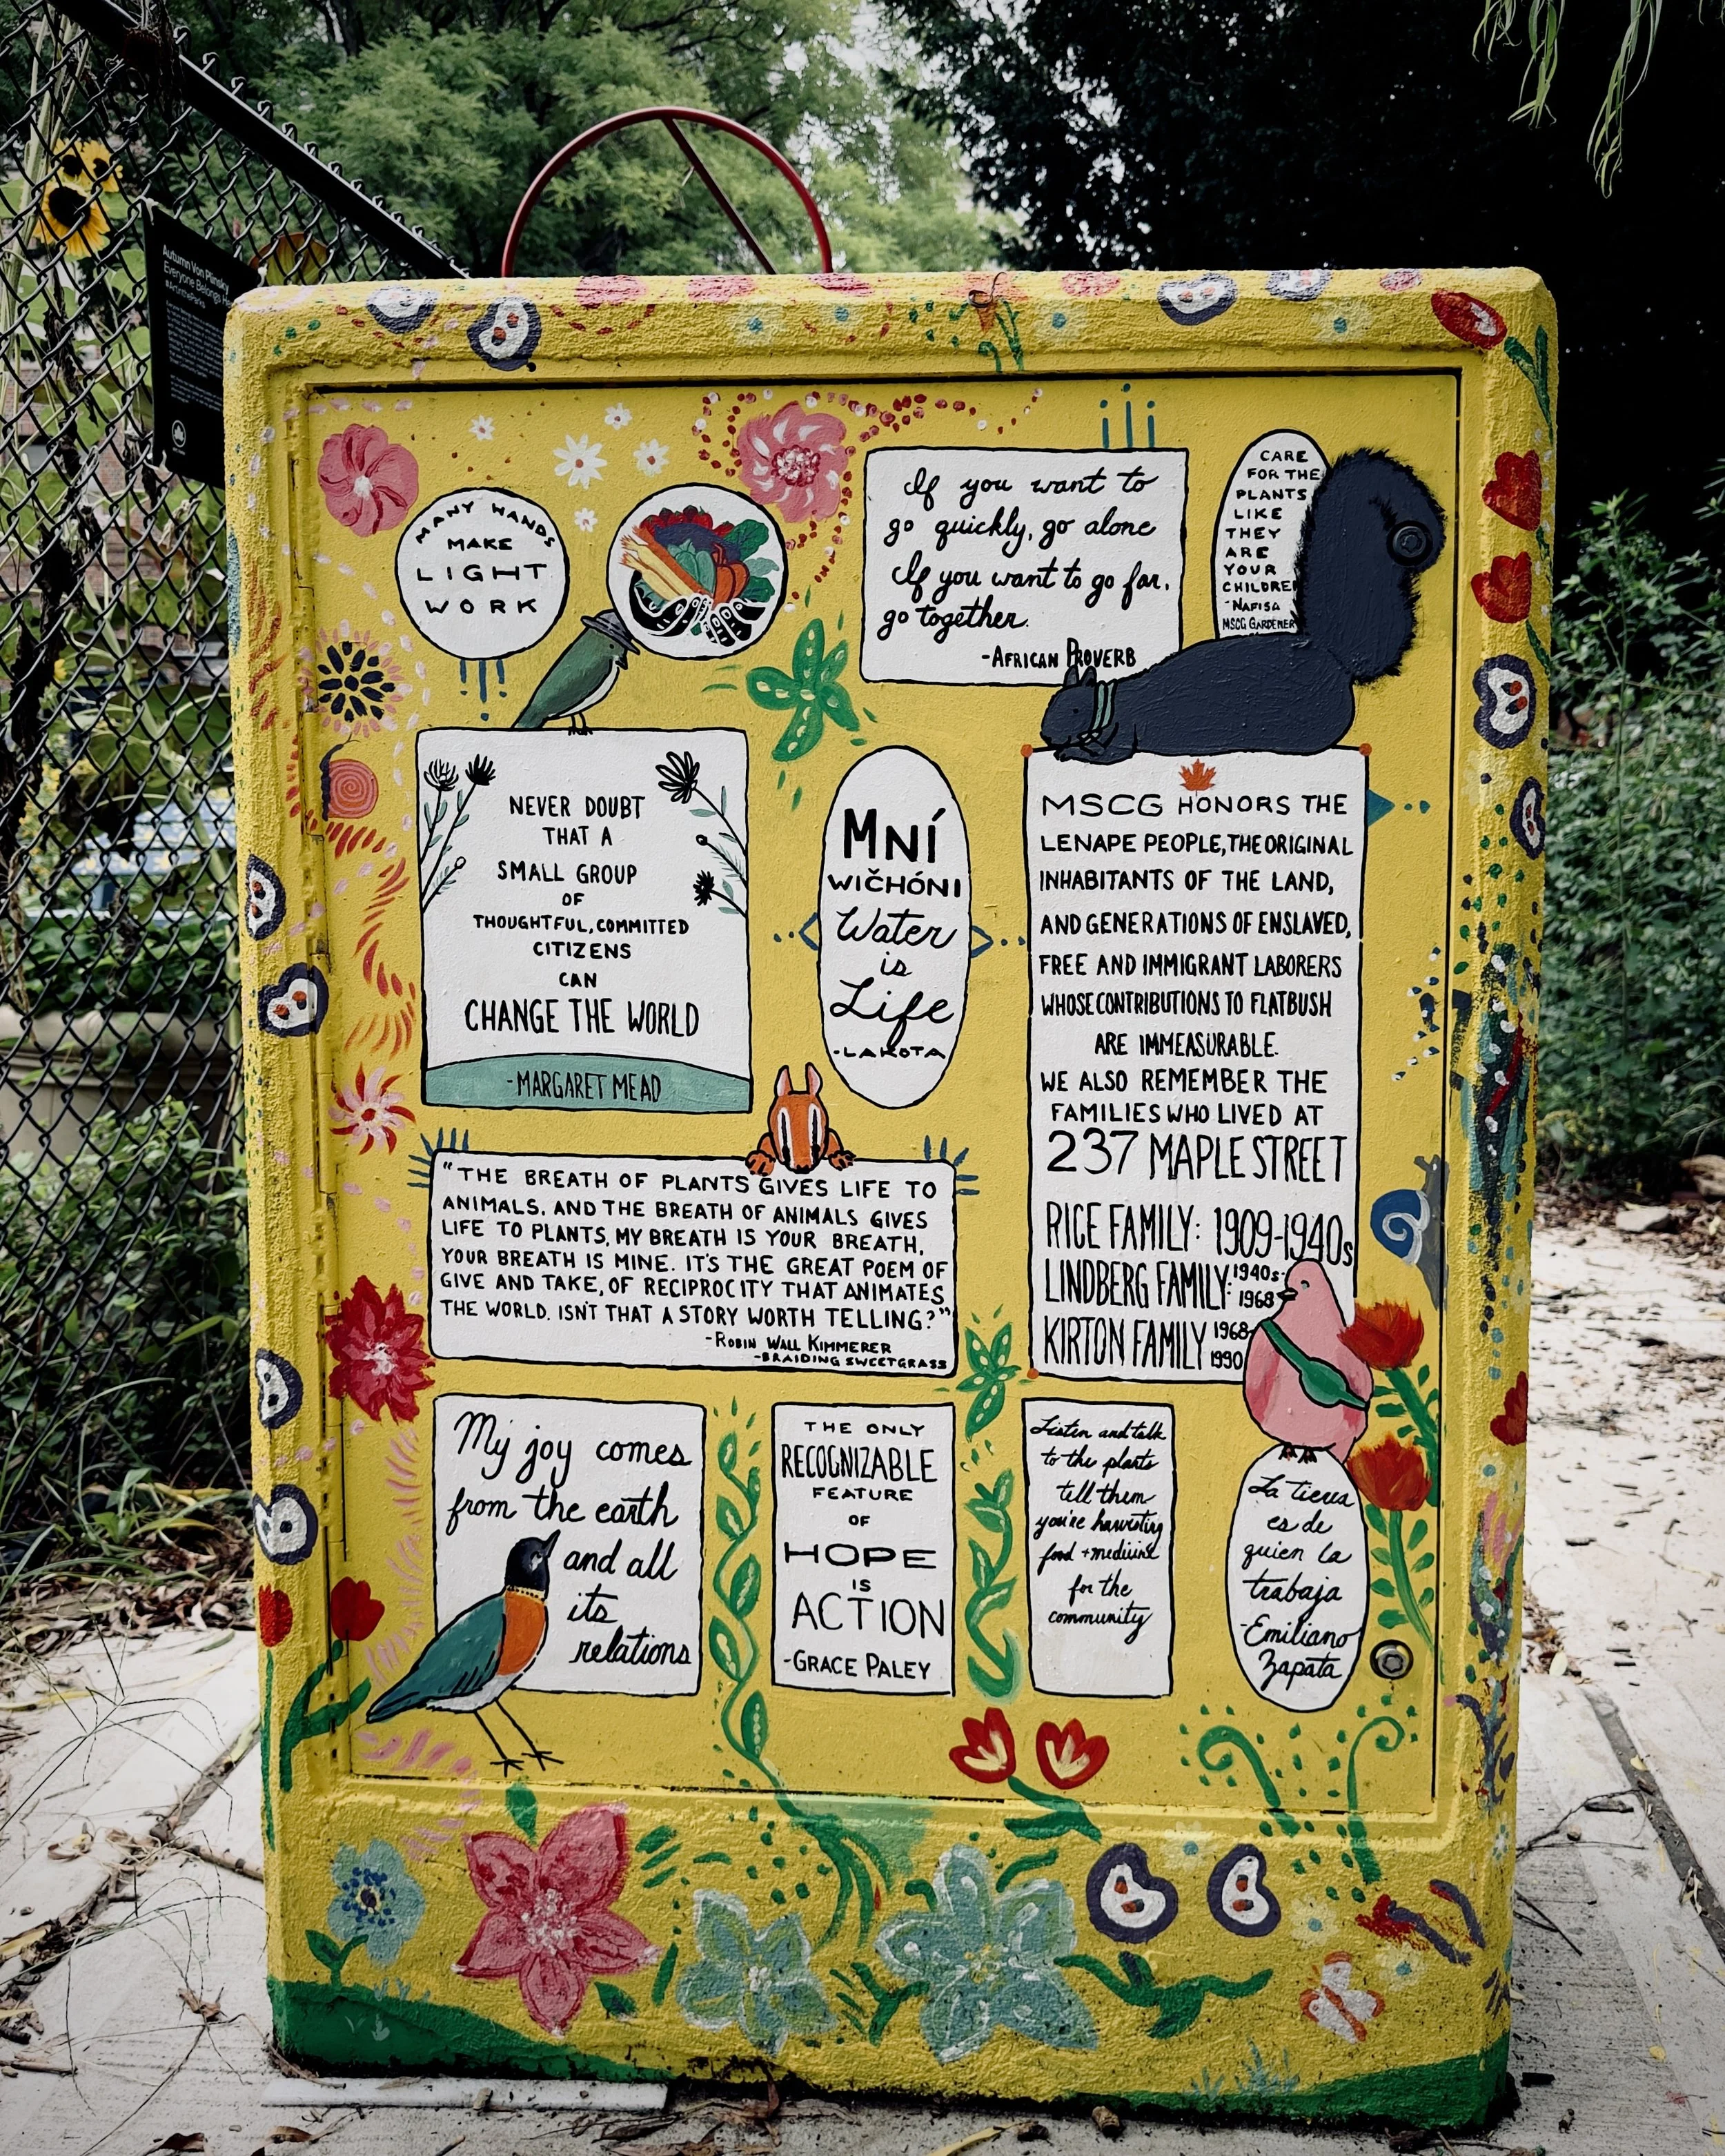 Autumn Von Plinsky
Everyone Belongs
MANY HANDS
MAKE
LIGHT
WORK
If you want to
go quickly, go alone
If you want to go far,
go together.
-AFRICAN PROVERB
CARE
FOR THE
PLANTS
LIKE
THEY
ARE
YOUR
CHILDREN
-NAFISA
MSCG GARDENER
NEVER DOUBT
THAT A
SMALL GROUP
OF
THOUGHTFUL, COMMITTED
CITIZENS
CAN
CHANGE THE WORLD
-MARGARET MEAD
MNÍ
WIČHÓNI
Water
is
Life
-LAKOTA
MSCG HONORS THE
LENAPE PEOPLE, THE ORIGINAL
INHABITANTS OF THE LAND,
AND GENERATIONS OF ENSLAVED,
FREE AND IMMIGRANT LABORERS
WHOSE CONTRIBUTIONS TO FLATBUSH
ARE IMMEASURABLE.
WE ALSO REMEMBER THE
FAMILIES WHO LIVED AT
237 MAPLE STREET
RICE FAMILY: 1909-1940s
LINDBERG FAMILY: 1940s-1968
KIRTON FAMILY 1968-1990
"THE BREATH OF PLANTS GIVES LIFE TO
ANIMALS, AND THE BREATH OF ANIMALS GIVES
LIFE TO PLANTS, MY BREATH IS YOUR BREATH,
YOUR BREATH IS MINE. IT'S THE GREAT POEM OF
GIVE AND TAKE, OF RECIPROCITY THAT ANIMATES
THE WORLD. ISN'T THAT A STORY WORTH TELLING?"
-ROBIN WALL KIMMERER
-BRAIDING SWEETGRASS
My joy comes
from the earth
and all
its
relations
THE ONLY
RECOGNIZABLE
FEATURE
OF
HOPE
IS
ACTION
-GRACE PALEY
Listen and talk
to the plants
tell them
you're harvesting
food + medicine
for the
community
La tierra
es de
quien la
trabaja
-Emiliano
Zapata